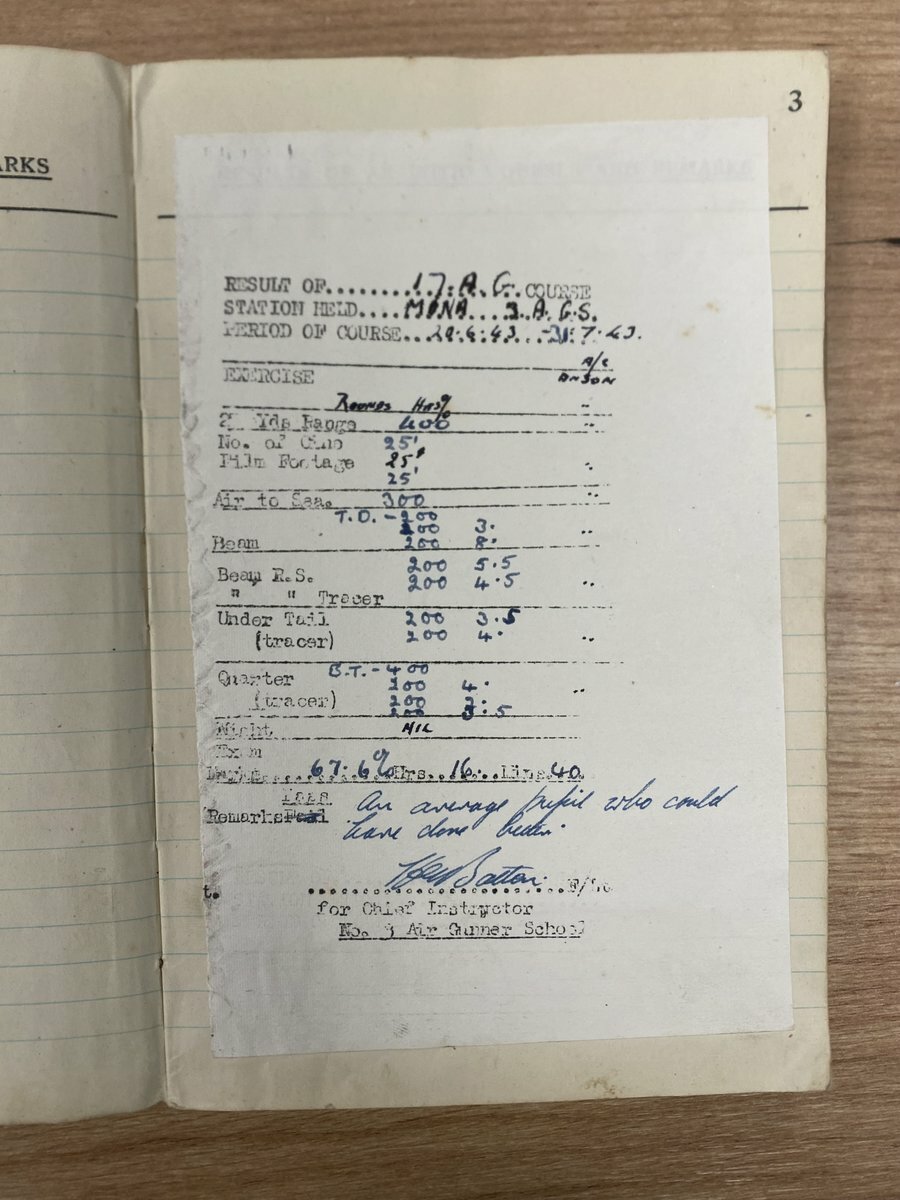 3
ARKS
RESULT OF........17.A.G.COURSE
STATION HELD....MONA...3.A.G.S.
PERIOD OF COURSE... .6.43...-31.7.43.
A/C
EXERCISE ANSON
ROUNDS HITS% "
Yds Range 400 "
No. of Cine 25'
Film Footage 25' "
25'
Air to Sea. 300 "
T.D.-200
200 3.
Beam 200 8. "
200 5.5
Beam R.S. 200 4.5 "
" " Tracer
Under Tail 200 3.5
(tracer) 200 4. "
B.T.-400
Quarter 200 4. "
(tracer) 200 2.
200 3.5
Night NIL
Exam
67.6% Hrs..16..Mins.40.
Pass An average pupil who could
Remarks Fail have done better.
t. F/Lt
for Chief Instructor
No. 3 Air Gunner School